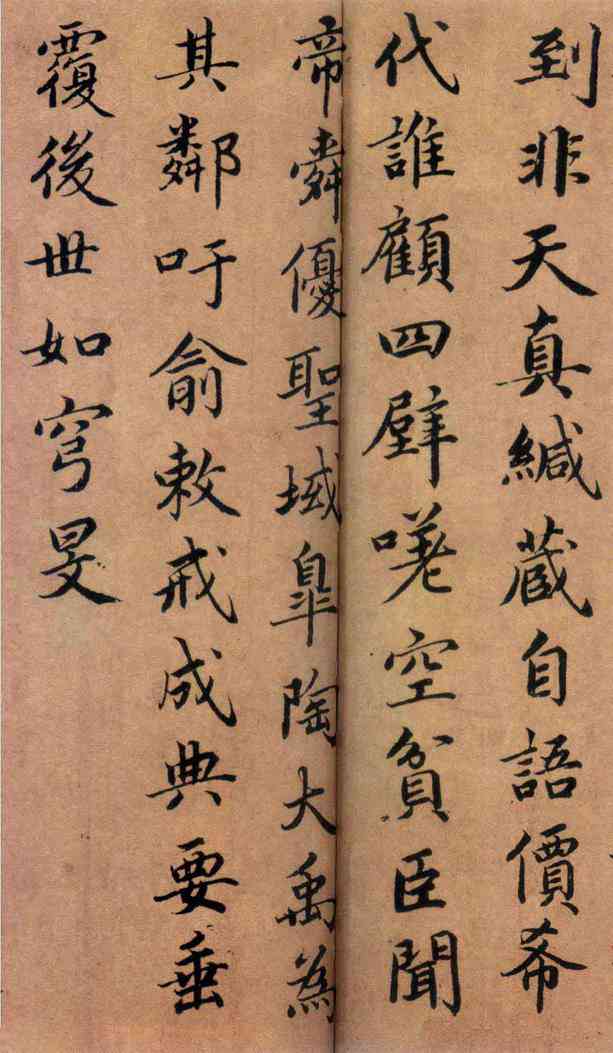 到非天真緘蔵自語價希
代誰顧四壁嘆空貧臣聞
帝舜優聖域臯陶大禹為
其鄰吁俞敕戒成典要垂
覆後世如穹旻